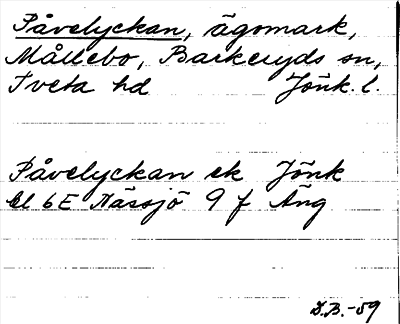 Påvelyckan, ägomark,
Mållebo, Barkeryds sn,
Tveta hd Jönk. l.
Påvelyckan ek Jönk
bl 6E Nässjö 9 f Äng
D.B.-59